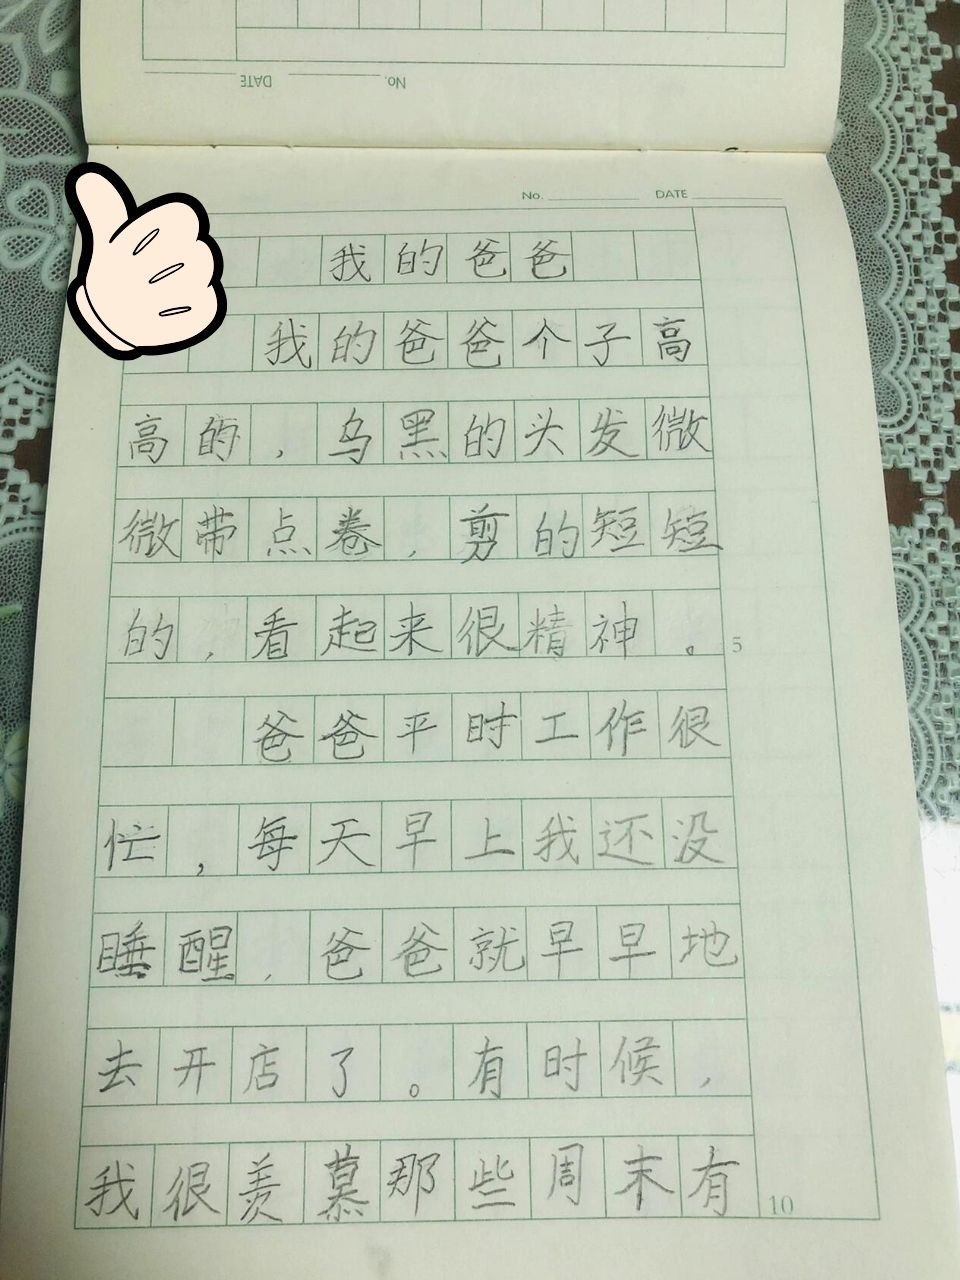 No. DATE
No. DATE
我的爸爸
我的爸爸个子高
高的，乌黑的头发微
微带点卷，剪的短短
的，看起来很精神。
5
爸爸平时工作很
忙，每天早上我还没
睡醒，爸爸就早早地
去开店了。有时候，
我很羡慕那些周末有
10